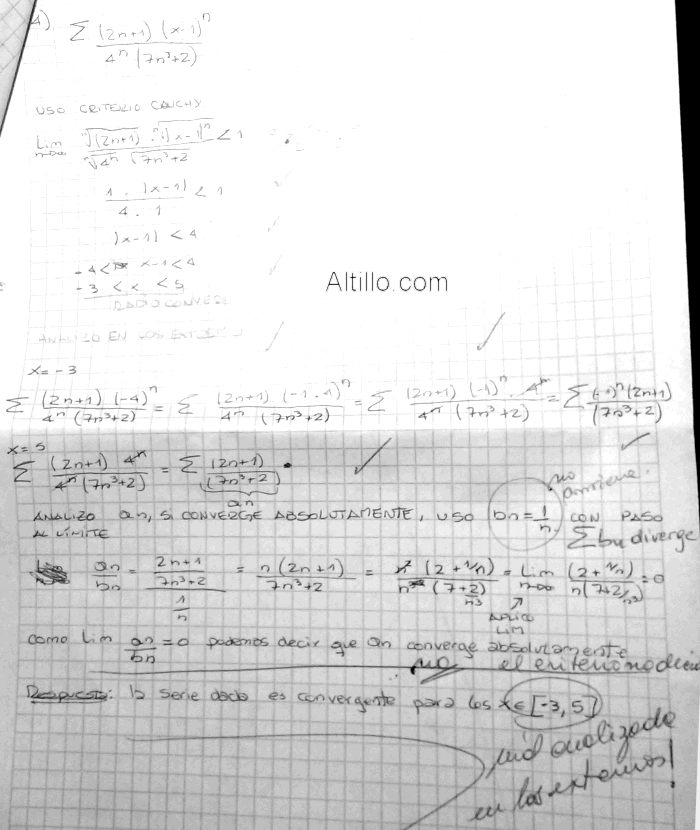 4)
∑ (2n+1) (x-1)^n / 4^n (7n³+2)
USO CRITERIO CAUCHY
Lim n→∞ ⁿ√(2n+1) · ⁿ√|x-1|^n / ⁿ√4^n ⁿ√7n³+2 < 1
1 . |x-1| / 4 . 1 < 1
|x-1| < 4
-4 < x-1 < 4
-3 < x < 5
RADIO CONVERG
Altillo.com
ANALIZO EN LOS EXTREMOS
x = -3
∑ (2n+1) (-4)^n / 4^n (7n³+2) = ∑ (2n+1) (-1·4)^n / 4^n (7n³+2) = ∑ (2n+1) (-1)^n · 4^n / 4^n (7n³+2) = ∑ (-1)^n (2n+1) / (7n³+2)
x = 5
∑ (2n+1) 4^n / 4^n (7n³+2) = ∑ (2n+1) / (7n³+2)
an
no
conviene.
ANALIZO an, SI CONVERGE ABSOLUTAMENTE, USO bn = 1/n, CON PASO
AL LÍMITE
∑ bn diverge
an/bn = (2n+1 / 7n³+2) / (1/n) = n (2n+1) / 7n³+2 = n² (2 + 1/n) / n³ (7+2/n³) = Lim n→∞ (2 + 1/n) / n(7+2/n³) = 0
APLICO
LIM
como Lim an/bn = 0 podemos decir que an converge absolutamente
no el criterio no dice
Respuesta: la serie dada es convergente para los x ∈ [-3, 5]
mal analizado
en los extremos!